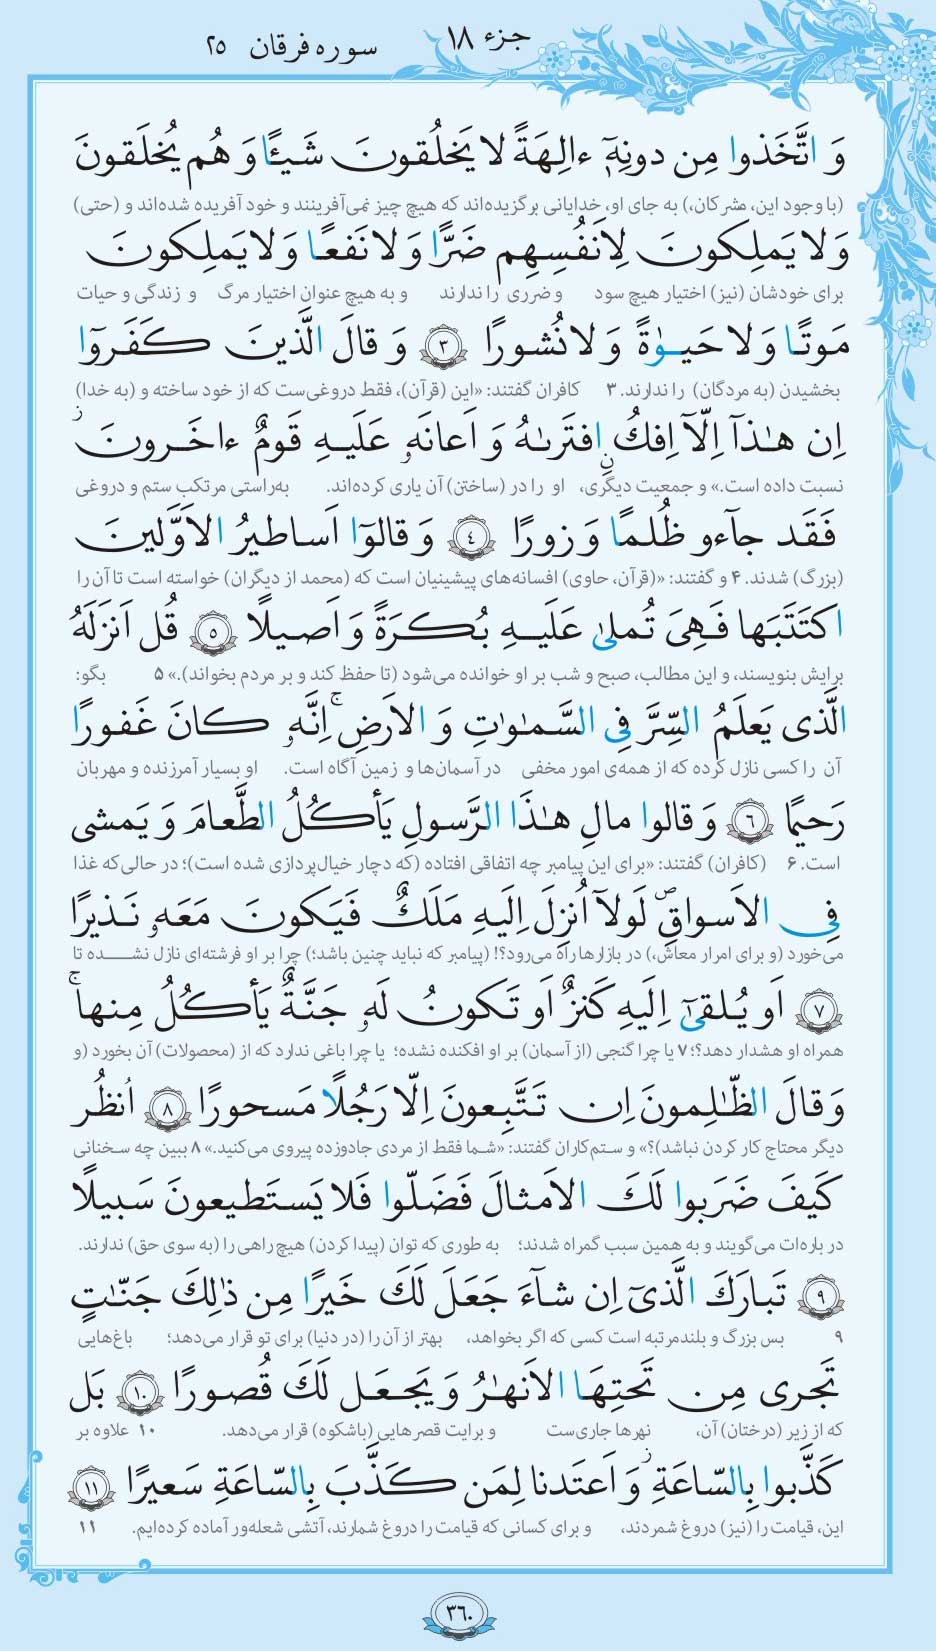 جزء ۱۸
سوره فرقان ۲۵
وَ اتَّخَذوا مِن دونِهٖٓ ءالِهَةً لا یَخلُقونَ شَیـًٔا وَ هُم یُخلَقونَ
(با وجود این، مشرکان،) به جای او، خدایانی برگزیده‌اند که هیچ چیز نمی‌آفرینند و خود آفریده شده‌اند و (حتی)
وَ لا یَملِکونَ لِاَنفُسِهِم ضَرًّا وَ لا نَفعًا وَ لا یَملِکونَ
برای خودشان (نیز) اختیار هیچ سود و ضرری را ندارند و به هیچ عنوان اختیار مرگ و زندگی و حیات
مَوتًا وَ لا حَیوٰةً وَ لا نُشورًا ﴿۳﴾ وَ قالَ الَّذینَ کَفَروٓا
بخشیدن (به مردگان) را ندارند. ۳ کافران گفتند: «این (قرآن)، فقط دروغی‌ست که از خود ساخته و (به خدا)
اِن هٰذآ اِلّآ اِفکٌ افتَرىٰهُ وَ اَعانَهٗ عَلَیهِ قَومٌ ءاخَرونَ ۛز
نسبت داده است.» و جمعیت دیگری، او را در (ساختن) آن یاری کرده‌اند. به‌راستی مرتکب ستم و دروغی
فَقَد جآءو ظُلمًا وَ زورًا ﴿۴﴾ وَ قالوٓا اَساطیرُ الاَوَّلینَ
(بزرگ) شدند. ۴ و گفتند: «(قرآن، حاوی) افسانه‌های پیشینیان است که (محمد از دیگران) خواسته است تا آن را
اکتَتَبَها فَهِیَ تُملىٰ عَلَیهِ بُکرَةً وَ اَصیلًا ﴿۵﴾ قُل اَنزَلَهُ
برایش بنویسند، و این مطالب، صبح و شب بر او خوانده می‌شود (تا حفظ کند و بر مردم بخواند).» ۵ بگو:
الَّذی یَعلَمُ السِّرَّ فِی السَّمٰوٰتِ وَ الاَرضِ ۚ اِنَّهٗ کانَ غَفورًا
آن را کسی نازل کرده که از همه‌ی امور مخفی در آسمان‌ها و زمین آگاه است. او بسیار آمرزنده و مهربان
رَحیمًا ﴿۶﴾ وَ قالوا مالِ هٰذَا الرَّسولِ یَأکُلُ الطَّعامَ وَ یَمشی
است. ۶ (کافران) گفتند: «برای این پیامبر چه اتفاقی افتاده (که دچار خیال‌پردازی شده است)؛ در حالی‌که غذا
فِی الاَسواقِ ۙ لَولآ اُنزِلَ اِلَیهِ مَلَکٌ فَیَکونَ مَعَهٗ نَذیرًا
می‌خورد (و برای امرار معاش،) در بازارها راه می‌رود؟! (پیامبر که نباید چنین باشد؛) چرا بر او فرشته‌ای نازل نشـــده تا
﴿۷﴾ اَو یُلقىٰٓ اِلَیهِ کَنزٌ اَو تَکونُ لَهٗ جَنَّةٌ یَأکُلُ مِنها ۚ
همراه او هشدار دهد؟؛ ۷ یا چرا گنجی (از آسمان) بر او افکنده نشده؛ یا چرا باغی ندارد که از (محصولات) آن بخورد (و
وَ قالَ الظّٰلِمونَ اِن تَتَّبِعونَ اِلّا رَجُلًا مَسحورًا ﴿۸﴾ اُنظُر
دیگر محتاج کار کردن نباشد)؟» و ستم‌کاران گفتند: «شما فقط از مردی جادوزده پیروی می‌کنید.» ۸ ببین چه سخنانی
کَیفَ ضَرَبوا لَکَ الاَمثالَ فَضَلّوا فَلا یَستَطیعونَ سَبیلًا
در باره‌ات می‌گویند و به همین سبب گمراه شدند؛ به طوری که توان (پیدا کردن) هیچ راهی را (به سوی حق) ندارند.
﴿۹﴾ تَبارَکَ الَّذیٓ اِن شآءَ جَعَلَ لَکَ خَیرًا مِن ذٰلِکَ جَنّٰتٍ
۹ بس بزرگ و بلندمرتبه است کسی که اگر بخواهد، بهتر از آن را (در دنیا) برای تو قرار می‌دهد؛ باغ‌هایی
تَجری مِن تَحتِهَا الاَنهٰرُ وَ یَجعَل لَکَ قُصورًا ﴿۱۰﴾ بَل
که از زیر (درختان) آن، نهرها جاری‌ست و برایت قصرهایی (باشکوه) قرار می‌دهد. ۱۰ علاوه بر
کَذَّبوا بِالسّاعَةِ ۖز وَ اَعتَدنا لِمَن کَذَّبَ بِالسّاعَةِ سَعیرًا ﴿۱۱﴾
این، قیامت را (نیز) دروغ شمردند، و برای کسانی که قیامت را دروغ شمارند، آتشی شعله‌ور آماده کرده‌ایم. ۱۱
۳۶۰